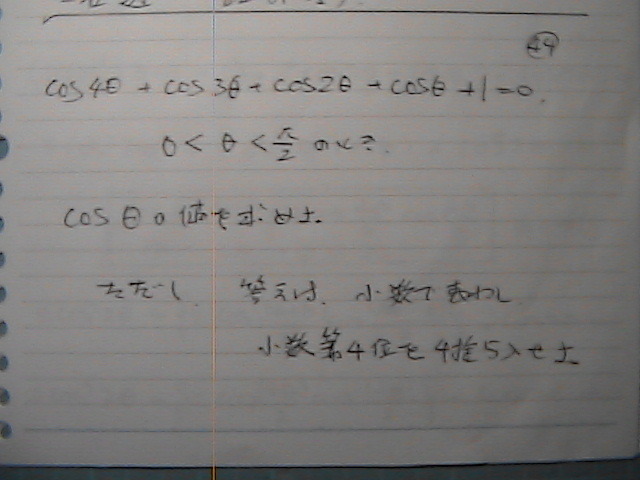 ㊾
cos4θ + cos3θ + cos2θ + cosθ + 1 = 0.
0 < θ < π/2 のとき.
cosθの値を求めよ.
ただし、答えは、小数で表わし
小数第4位を4捨5入せよ